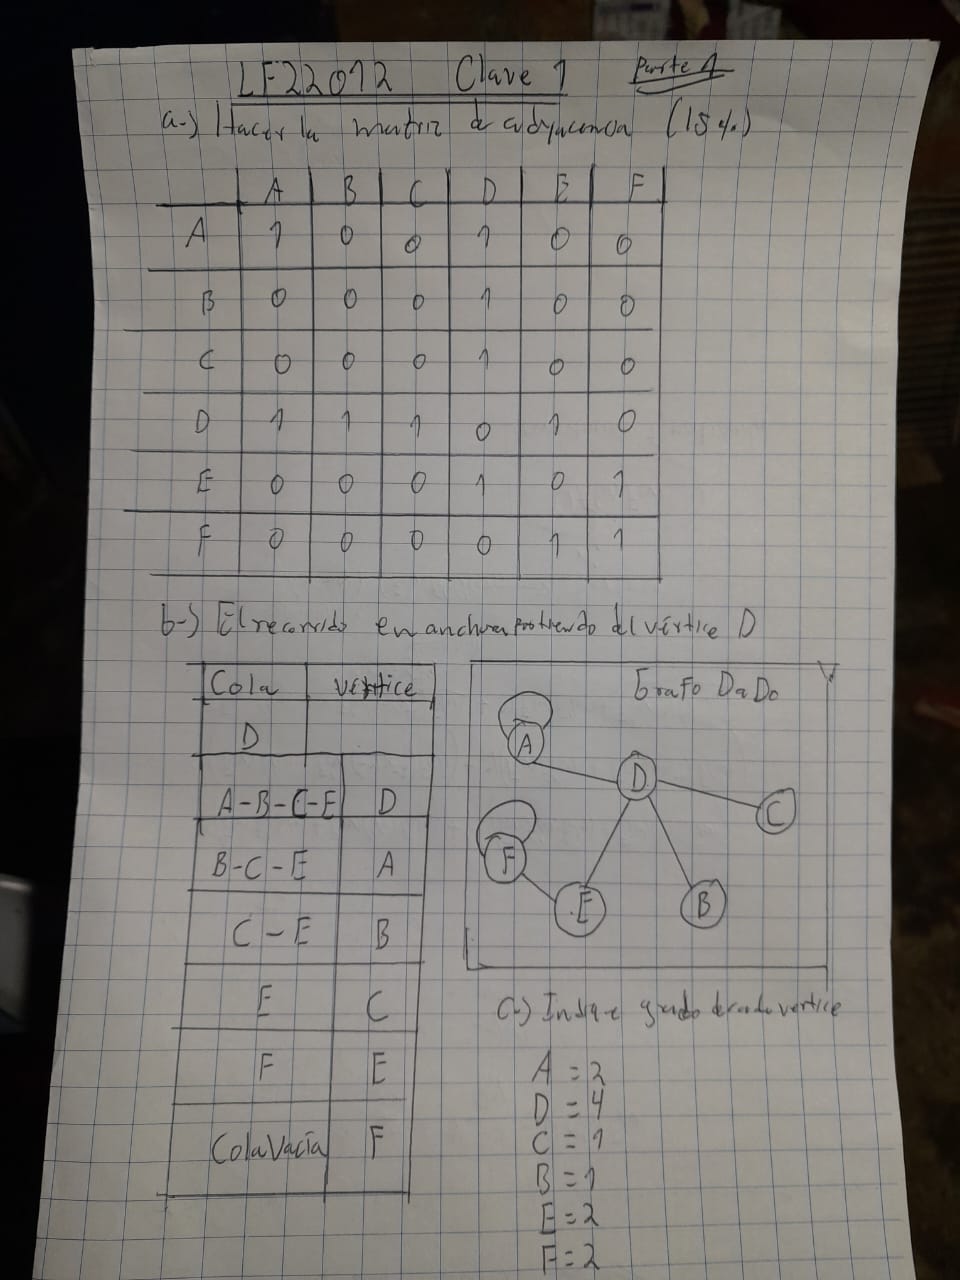 LF22012 Clave 1 Parte 1
a-) Hacer la matriz de adyacencia (15%)
A B C D E F
A 1 0 0 1 0 0
B 0 0 0 1 0 0
C 0 0 0 1 0 0
D 1 1 1 0 1 0
E 0 0 0 1 0 1
F 0 0 0 0 1 1
b-) El recorrido en anchura partiendo del vértice D
Cola vértice
D
A-B-C-E D
B-C-E A
C-E B
E C
F E
Cola Vacía F
Grafo DaDo
A
D
C
F
E
B
C-) Indique grado de cada vertice
A = 2
D = 4
C = 1
B = 1
E = 2
F = 2